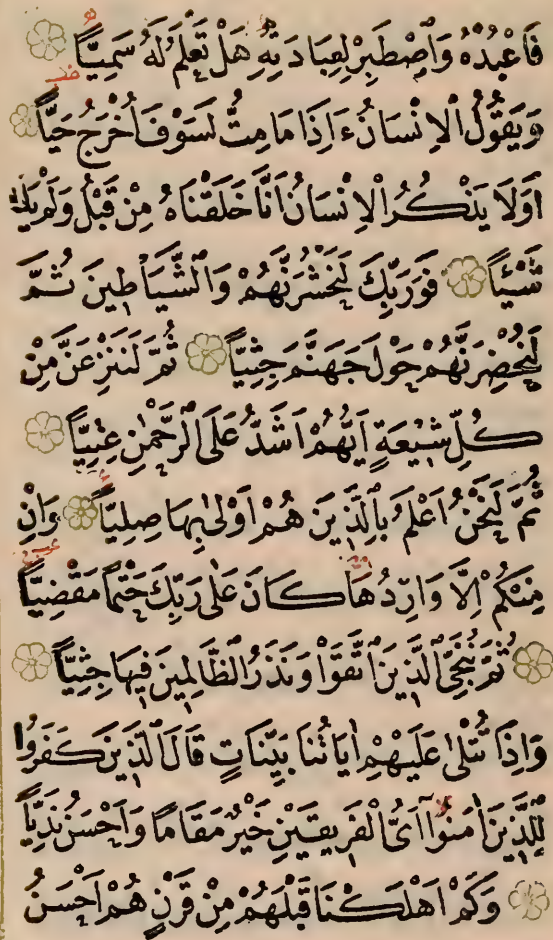 فَاعْبُدْهُ وَاصْطَبِرْ لِعِبَادَتِهِ هَلْ تَعْلَمُ لَهُ سَمِيًّا
وَيَقُولُ الْاِنْسَانُ ءَاِذَا مَا مِتُّ لَسَوْفَ اُخْرَجُ حَيًّا
اَوَلَا يَذْكُرُ الْاِنْسَانُ اَنَّا خَلَقْنَاهُ مِنْ قَبْلُ وَلَمْ يَكُ
شَيْئًا فَوَرَبِّكَ لَنَحْشُرَنَّهُمْ وَالشَّيَاطِينَ ثُمَّ
لَنُحْضِرَنَّهُمْ حَوْلَ جَهَنَّمَ جِثِيًّا ثُمَّ لَنَنْزِعَنَّ مِنْ
كُلِّ شِيعَةٍ اَيُّهُمْ اَشَدُّ عَلَى الرَّحْمٰنِ عِتِيًّا
ثُمَّ لَنَحْنُ اَعْلَمُ بِالَّذِينَ هُمْ اَوْلٰى بِهَا صِلِيًّا وَاِنْ
مِنْكُمْ اِلَّا وَارِدُهَا كَانَ عَلٰى رَبِّكَ حَتْمًا مَقْضِيًّا
ثُمَّ نُنَجِّي الَّذِينَ اتَّقَوْا وَنَذَرُ الظَّالِمِينَ فِيهَا جِثِيًّا
وَاِذَا تُتْلٰى عَلَيْهِمْ اٰيَاتُنَا بَيِّنَاتٍ قَالَ الَّذِينَ كَفَرُوا
لِلَّذِينَ اٰمَنُوا اَيُّ الْفَرِيقَيْنِ خَيْرٌ مَقَامًا وَاَحْسَنُ نَدِيًّا
وَكَمْ اَهْلَكْنَا قَبْلَهُمْ مِنْ قَرْنٍ هُمْ اَحْسَنُ